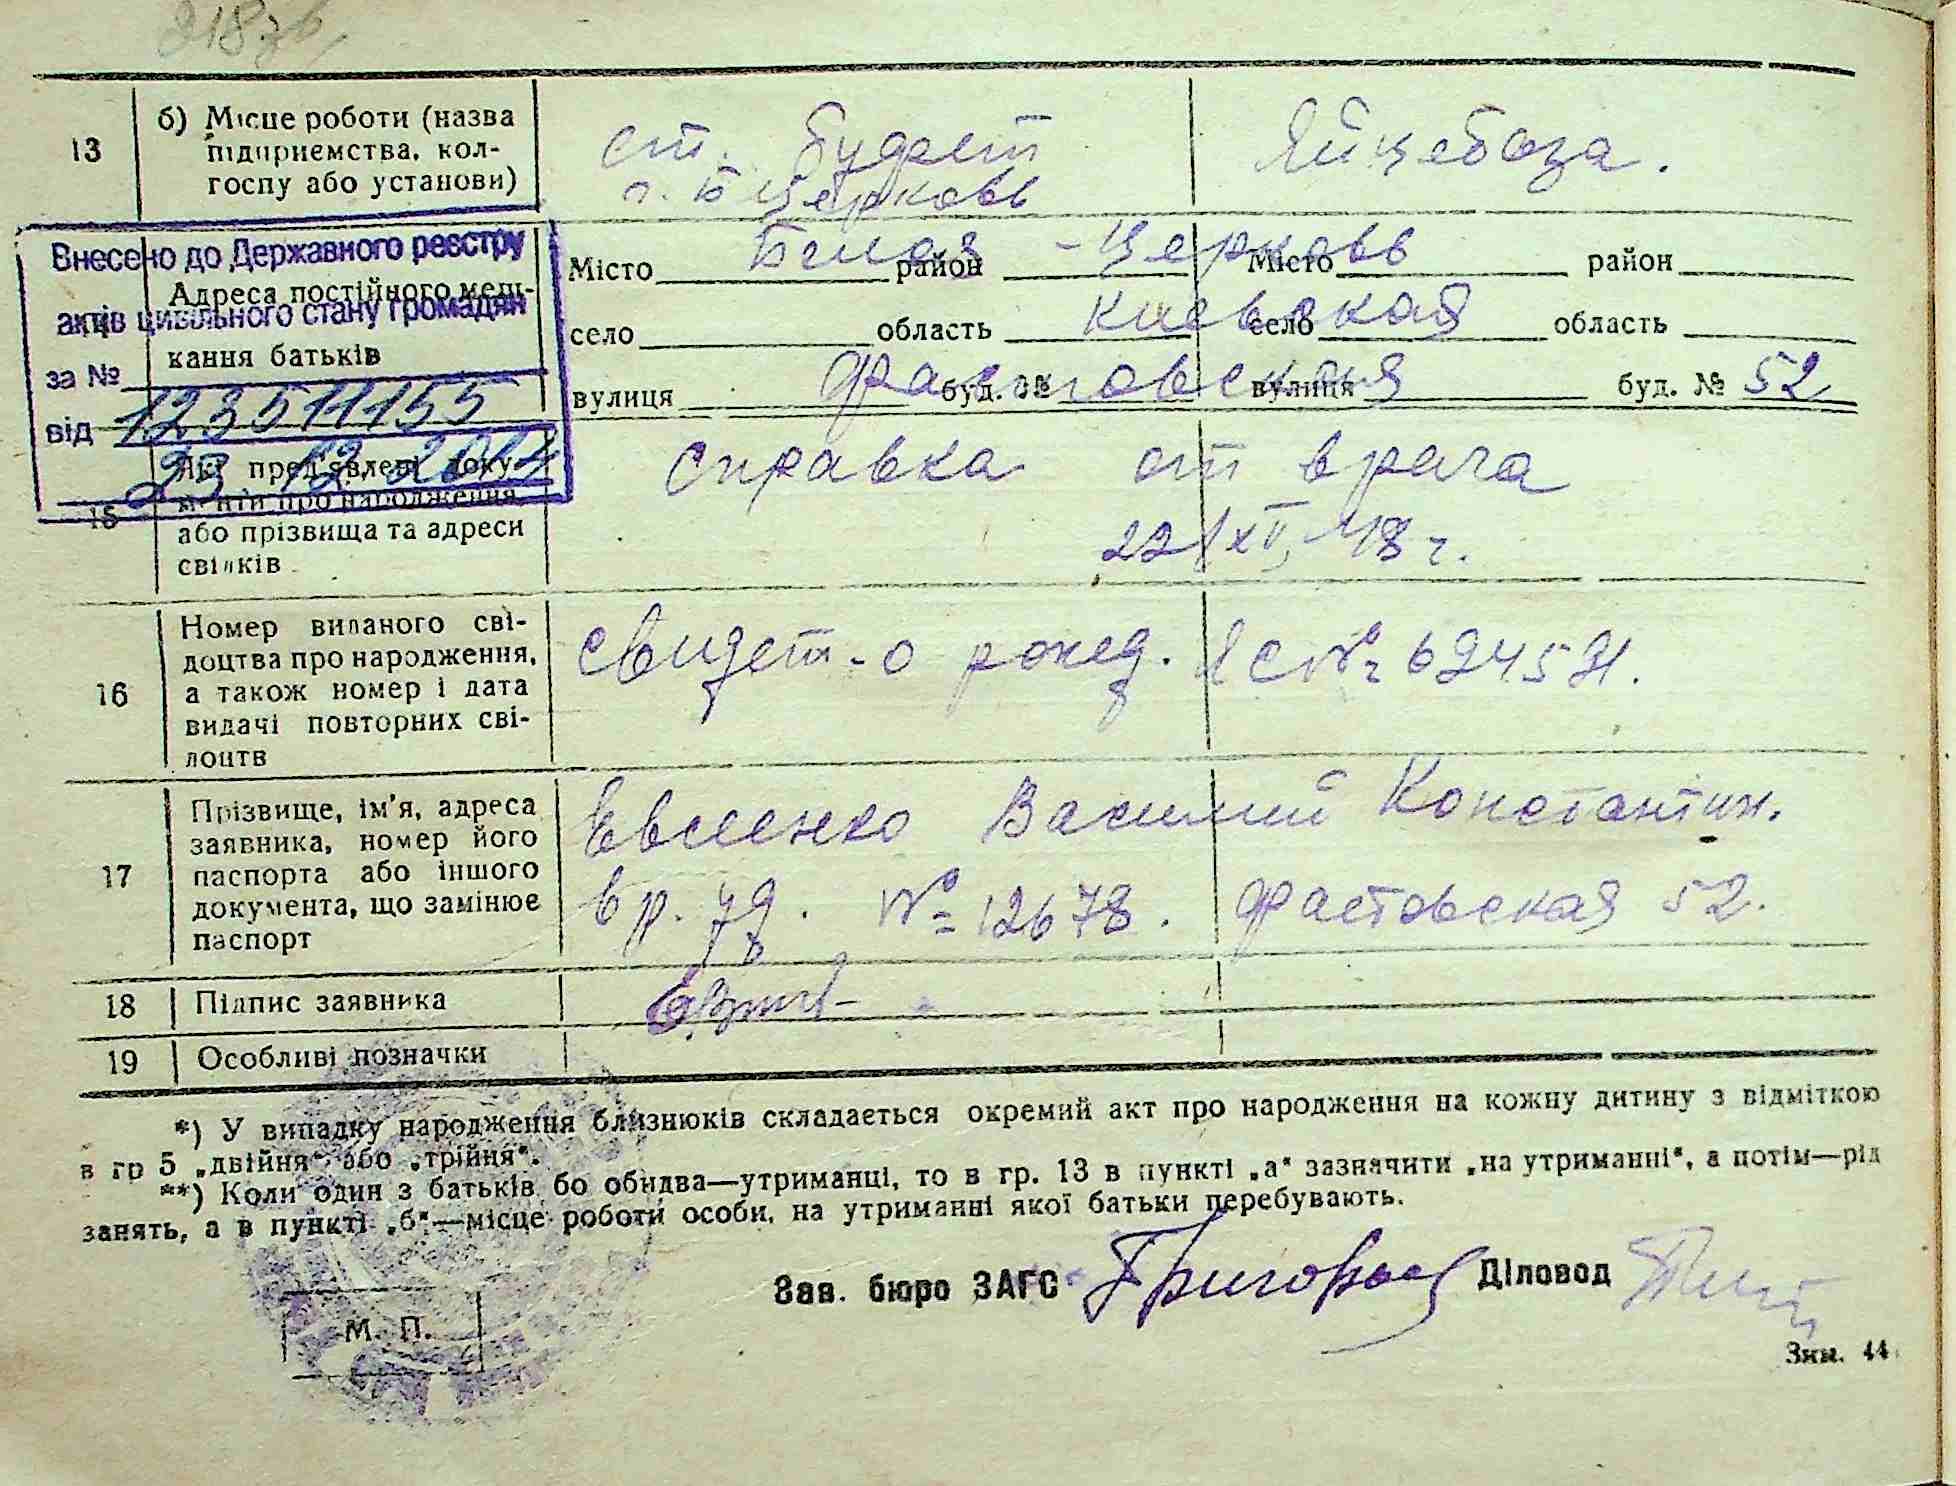 218зв
13
б) Місце роботи (назва
підприємства, кол-
госпу або установи)
ст. будест
г. Б Церковь
Яйцебаза.
Внесено до Державного реєстру
актів цивільного стану громадян
за № 123511155
від 23.12.2014
Адреса постійного меш-
кання батьків
Місто Белая район - Церковь Місто район
село область Киевская село область
вулиця Фастовская буд. № вулиця буд. № 52
15
Які пред'явлені доку-
менти про народження
або прізвища та адреси
свідків
справка от врача
22/XII 48 г.
16
Номер виданого сві-
доцтва про народження,
а також номер і дата
видачі повторних сві-
доцтв
Свидет-о рожд. ЯС № 624521.
17
Прізвище, ім'я, адреса
заявника, номер його
паспорта або іншого
документа, що замінює
паспорт
Евсеенко Василий Константин.
вр. уд. № 12678. Фастовская 52.
18
Підпис заявника
19
Особливі позначки
*) У випадку народження близнюків складається окремий акт про народження на кожну дитину з відміткою
в гр 5 „двійня“ або „трійня“.
**) Коли один з батьків бо обидва—утриманці, то в гр. 13 в пункті „а“ зазначити „на утриманні“, а потім—рід
занять, а в пункті „б“—місце роботи особи, на утриманні якої батьки перебувають.
Зав. бюро ЗАГС Діловод
М. П.
Зим. 44